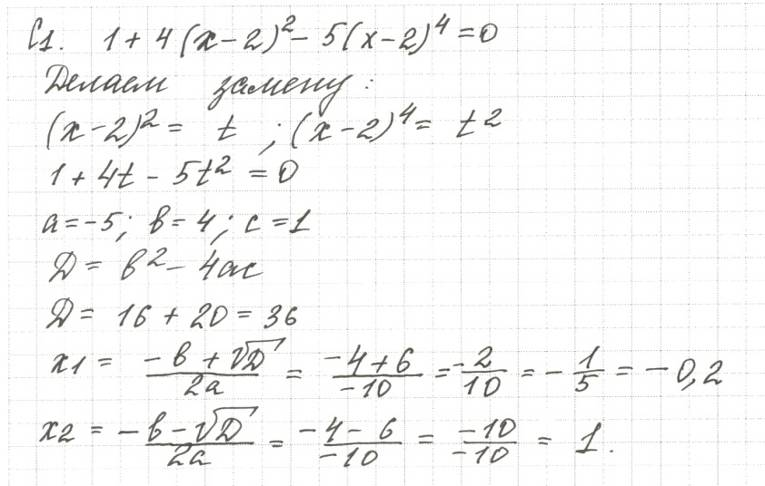 С1. 1 + 4(x-2)² - 5(x-2)⁴ = 0
Делаем замену:
(x-2)² = t ; (x-2)⁴ = t²
1 + 4t - 5t² = 0
a = -5; b = 4; c = 1
Д = b² - 4ac
Д = 16 + 20 = 36
x1 = (-b + √Д)/2a = (-4+6)/-10 = -2/10 = -1/5 = -0,2
x2 = (-b - √Д)/2a = (-4-6)/-10 = -10/-10 = 1.